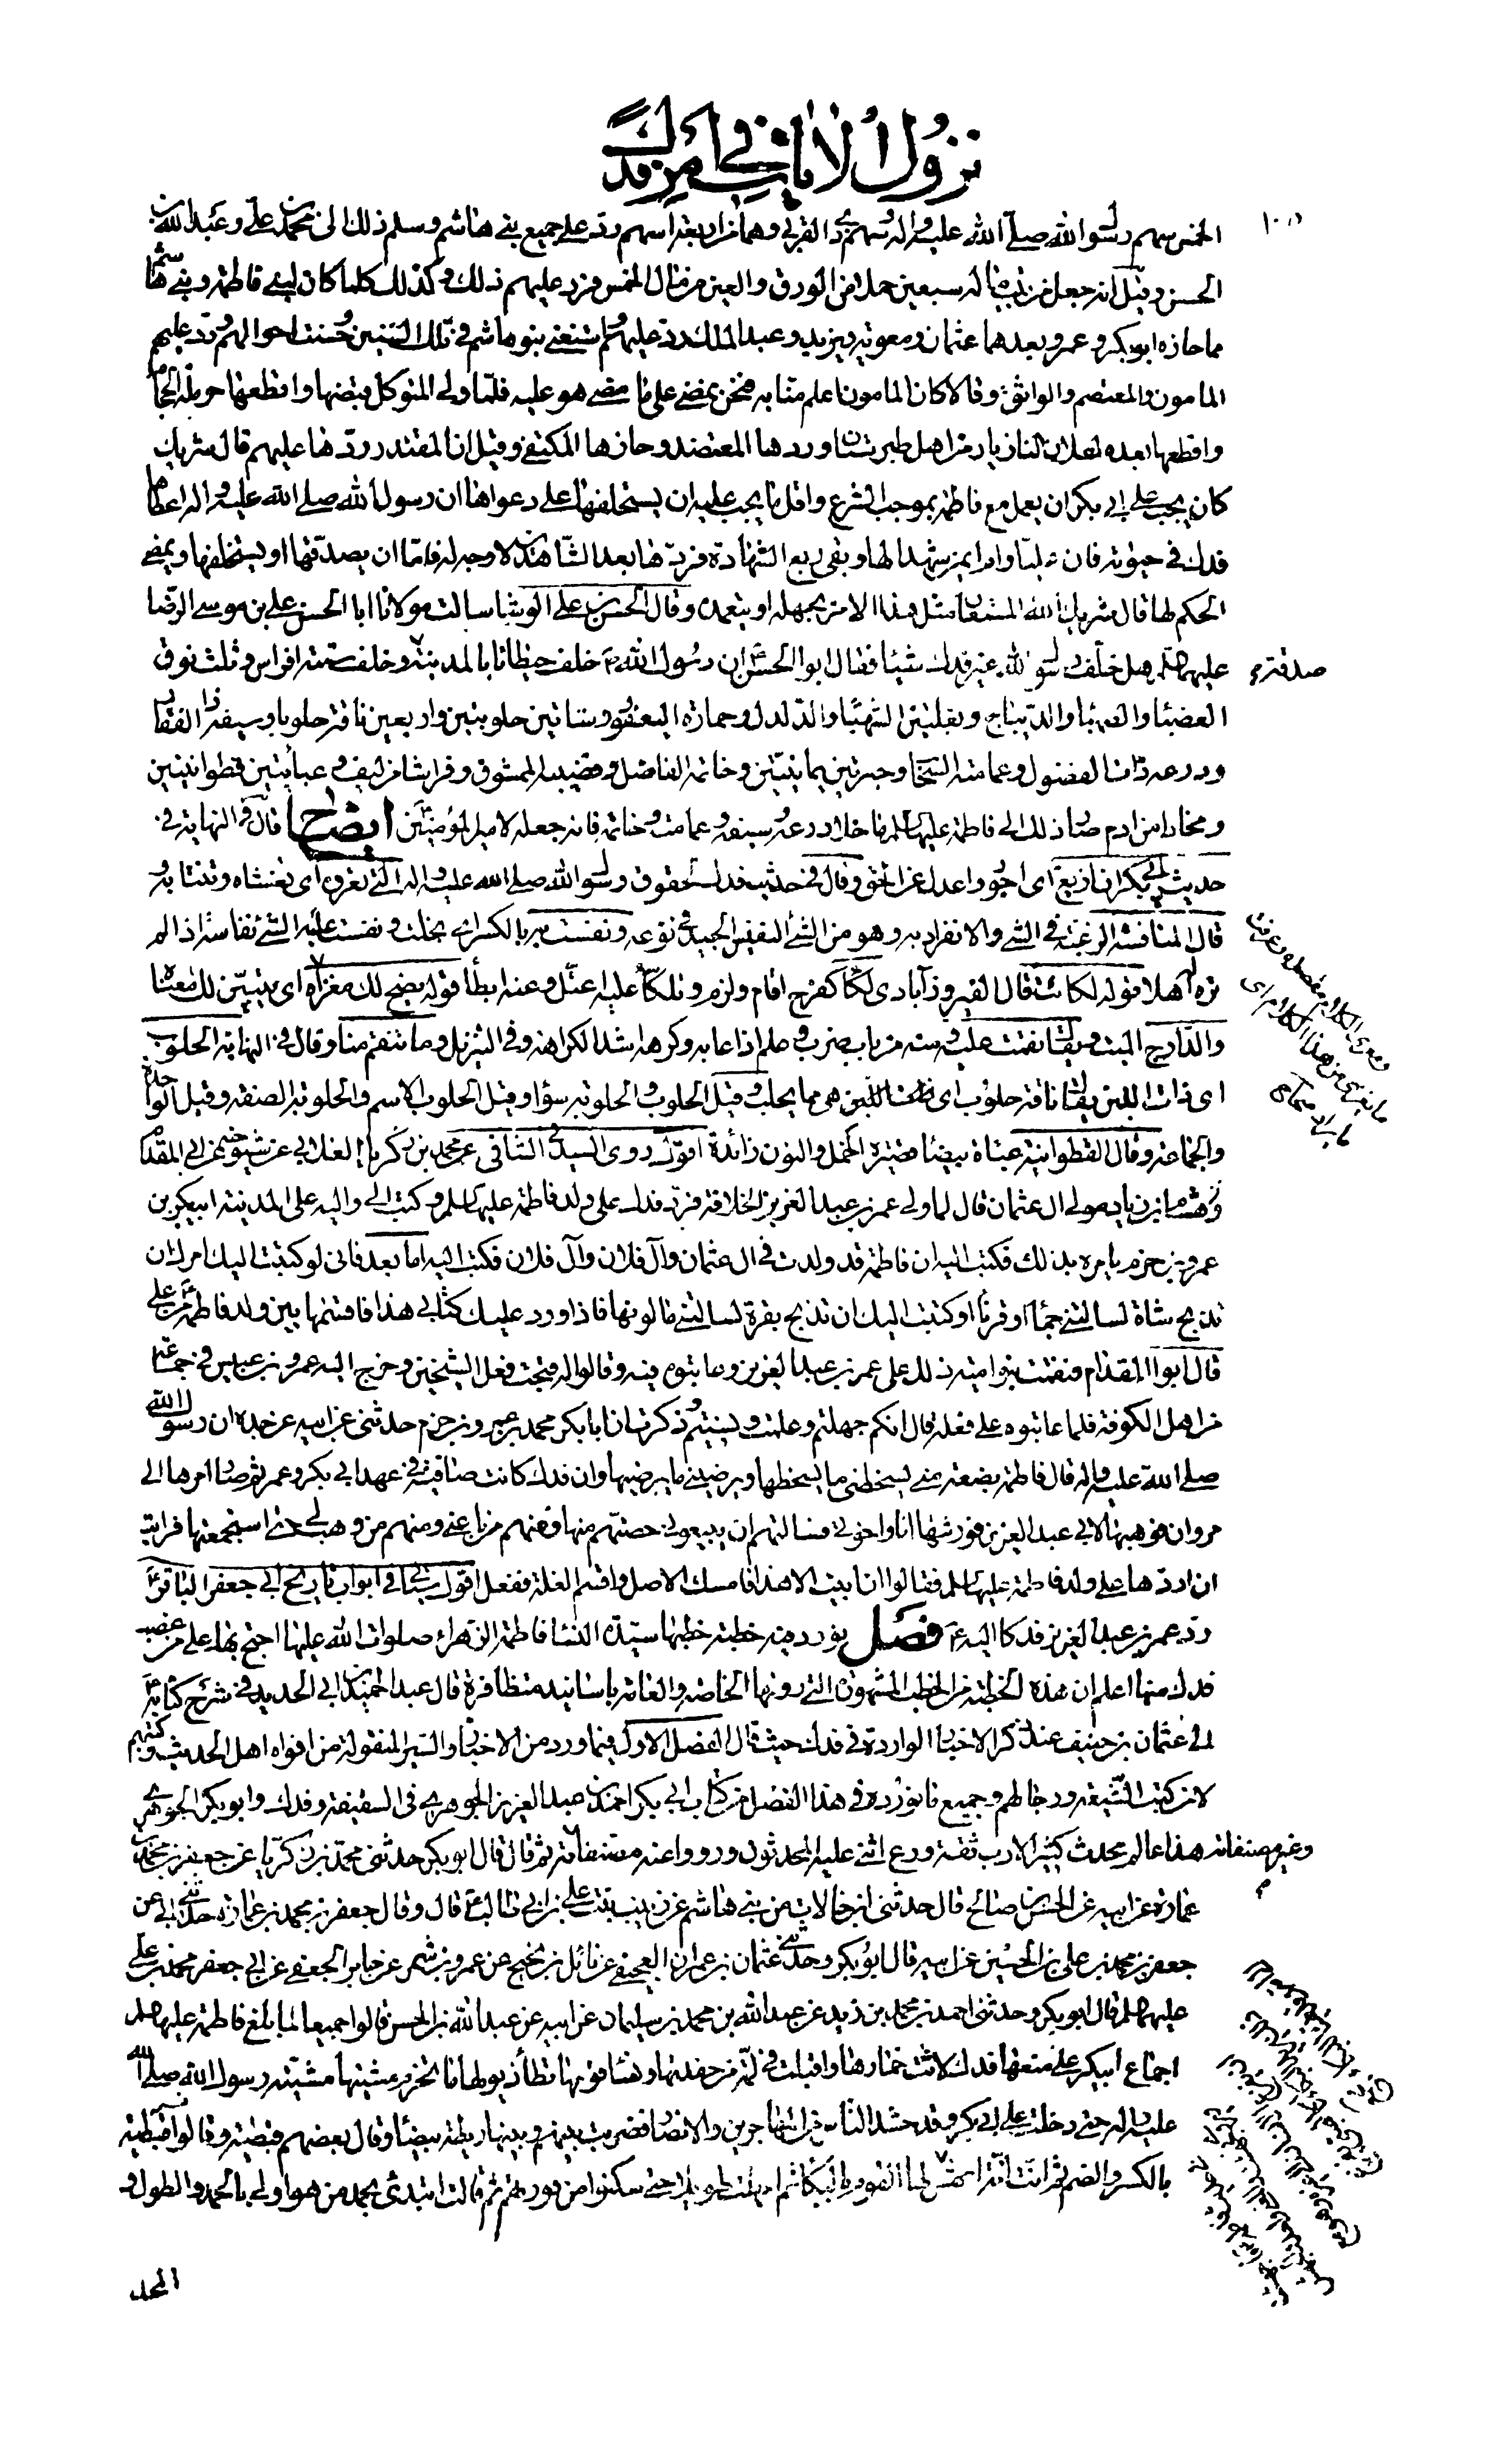 نزول الايات في امر فدك
١٠١
الخمس سهم رسول الله صلى الله عليه واله وسهم ذي القربى وهما من اربعة اسهم رد على جميع بني هاشم وسلم ذلك الى محمد بن علي وعبد الله بن
الحسن وقيل انه جعل من بيت ماله سبعين حملا من الورق والعين من مال الخمس فرد عليهم ذلك وكذلك كلما كان لبني فاطمة وبني هاشم
مما حازه ابو بكر وعمر وبعدهما عثمان ومعوية ويزيد وعبد الملك رد عليهم واستغنى بنو هاشم في تلك السنين وحسنت احوالهم ورد عليهم
المامون والمعتصم والواثق وقالا كان المامون اعلم منا به فنحن نمضي على ما مضى هو عليه فلما ولي المتوكل قبضها واقطعها حرملة الحجام
واقطعها بعده لفلان النازيار من اهل طبرستان وردها المعتضد وحازها المكتفي وقيل ان المقتدر ردها عليهم قال شريك
كان يجب على ابي بكر ان يعمل مع فاطمة بموجب الشرع واقل ما يجب عليه ان يستحلفها على دعواها ان رسول الله صلى الله عليه واله اعطاها
فدك في حيوته فان عليا وام ايمن شهدا لها وبقي ربع الشهادة فردها بعد الشاهدين لا وجه له فاما ان يصدقها او يستحلفها ويمضي
الحكم لها قال شريك الله المستعان مثل هذا الامر يجهله او يتعمده وقال الحسن بن علي الوشا سالت مولانا ابا الحسن علي بن موسى الرضا
عليهما السلم هل خلف رسول الله غير فدك شيئا فقال ابو الحسن ان رسول الله ص خلف حيطانا بالمدينة صدقة وخلف ستة افراس وثلث نوق
العضبا والصهبا والديباج وبغلتين الشهبا والدلدل وحماره اليعفور وشاتين حلوبتين واربعين ناقة حلوبا وسيفه ذا الفقار
ودرعه ذات الفضول وعمامته السحاب وحبرتين يمانيتين وخاتمه الفاضل وقضيبه الممشوق وفراشا من ليف وعبائتين قطوانيتين
ومخادا من ادم صار ذلك الى فاطمة عليها السلم ما خلا درعه وسيفه وعمامته وخاتمه فانه جعله لامير المؤمنين ايضاح قال في النهاية في
حديث ابي بكر ان ازيغ اي اجور واعدل عن الحق وقال في حديث فدك لحقوق رسول الله صلى الله عليه واله التي تعروه اي تغشاه وتنتابه و
قال المنافسة الرغبة في الشي والانفراد به وهو من الشئ النفيس الجيد في نوعه ونفست به بالكسر اي بخلت ونفست عليه الشئ نفاسة اذا لم
تره له اهلا قوله لكات قال الفيروزآبادي لكا كفرح اقام ولزم وتلكا عليه اعتل وعنه ابطأ قوله يضح لك مغزاه اي يتبين لك معناه
ومغزى الكلام مقصده وعرفت ما يغزى من هذا الكلام اي ما يراد صحاح
والدارج الميت ويقال نقمت عليه ومنه من باب ضرب وعلم اذا عابه وكرهه اشد الكراهة وفي التنزيل وما تنقم منا وقال في النهاية الحلوب
اي ذات اللبن يقال ناقة حلوب اي هي مما يحلب وقيل الحلوب والحلوبة سواء وقيل الحلوب الاسم والحلوبة الصفة وقيل الواحدة
والجماعة وقال القطوانية عباة بيضا قصيرة الخمل والنون زائدة اقول روى السيد في الشافي عن محمد بن زكريا الغلابي عن شيوخه عن ابي المقدام
هشام بن زياد مولى ال عثمان قال لما ولي عمر بن عبد العزيز الخلافة فرد فدك على ولد فاطمة عليها السلم وكتب الى واليه على المدينة ابي بكر بن
عمرو بن حزم يامره بذلك فكتب اليه ان فاطمة قد ولدت في ال عثمان وآل فلان وآل فلان فكتب اليه اما بعد فاني لو كتبت اليك امرك ان
تذبح شاة لسالتني جما او قرنا او كتبت اليك ان تذبح بقرة لسالتني ما لونها فاذا ورد عليك كتابي هذا فاقسمها بين ولد فاطمة من علي
قال ابو المقدام فنقمت بنو امية ذلك على عمر بن عبد العزيز وعاتبوه فيه وقالوا له قبحت فعل الشيخين وخرج اليه عمرو بن عبيس في جماعة
من اهل الكوفة فلما عاتبوه على فعله قال انكم جهلتم وعلمت ونسيتم وذكرت ان ابا بكر محمد بن عمرو بن حزم حدثني عن ابيه عن جده ان رسول الله
صلى الله عليه واله قال فاطمة بضعة مني يسخطني ما يسخطها ويرضيني ما يرضيها وان فدك كانت صافية في عهد ابي بكر وعمر ثم صار امرها الى
مروان فوهبها لابي عبد العزيز فورثتها انا واخوتي فسالتهم ان يبيعوني حصتهم منها فمنهم من باعني ومنهم من وهب لي حتى استجمعتها فرايت
ان اردها على ولد فاطمة عليها السلم فقالوا ان ابيت الا هذا فامسك الاصل واقسم الغلة ففعل اقول سياتي في ابواب تاريخ ابي جعفر الباقر
رد عمر بن عبد العزيز فدكا اليه ع فصل نورد فيه خطبة خطبتها سيدة النسا فاطمة الزهراء صلوات الله عليها احتج بها على من غصب
فدك منها اعلم ان هذه الخطبة من الخطب المشهورة التي روتها الخاصة والعامة باسانيد متظافرة قال عبد الحميد بن ابي الحديد في شرح كتابه
الى عثمان بن حنيف عند ذكر الاخبار الواردة في فدك حيث قال الفصل الاول فيما ورد من الاخبار والسير المنقولة من افواه اهل الحديث وكتبهم
لا من كتب الشيعة ورجالهم وجميع ما نورده في هذا الفصل من كتاب ابي بكر احمد بن عبد العزيز الجوهري في السقيفة وفدك وابو بكر الجوهري
هذا عالم محدث كثير الادب ثقة ورع اثنى عليه المحدثون ورووا عنه مصنفاته وغير مصنفاته ثم قال قال ابو بكر حدثني محمد بن زكريا عن جعفر بن محمد بن
عمارة عن ابيه عن الحسن بن صالح قال حدثني ابن خالات من بني هاشم عن زينب بنت علي بن ابي طالب ع قال وقال جعفر بن محمد بن عمارة حدثني ابي عن
جعفر بن محمد بن علي بن الحسين عن ابيه قال ابو بكر وحدثني عثمان بن عمران العجيفي عن نائل بن نجيح عن عمرو بن شمر عن جابر الجعفي عن ابي جعفر محمد بن علي
عليهما السلم قال ابو بكر وحدثني احمد بن محمد بن زيد عن عبد الله بن محمد بن سليمان عن ابيه عن عبد الله بن الحسن قالوا جميعا لما بلغ فاطمة عليها السلم
اجماع ابي بكر على منعها فدك لاثت خمارها واقبلت في لمة من حفدتها ونساء قومها تطأ ذيولها ما تخرم مشيتها مشية رسول الله صلى الله
عليه واله حتى دخلت على ابي بكر وقد حشد الناس من المهاجرين والانصار فضرب بينهم وبينها ريطة بيضا وقال بعضهم قبطية وقالوا قبطية
بالكسر والضم ثم انت انة اجهش لها القوم بالبكا ثم امهلت طويلا حتى سكنوا من فورتهم ثم قالت ابتدئ بحمد من هو اولى بالحمد والطول و
المجد